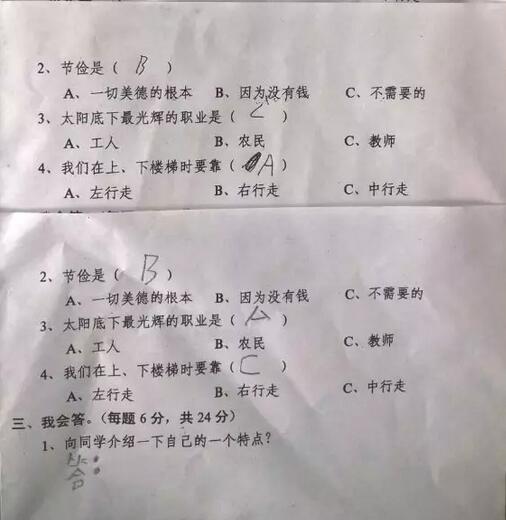 2、节俭是（ B ）
A、一切美德的根本 B、因为没有钱 C、不需要的
3、太阳底下最光辉的职业是（ C ）
A、工人 B、农民 C、教师
4、我们在上、下楼梯时要靠（ A ）
A、左行走 B、右行走 C、中行走
2、节俭是（ B ）
A、一切美德的根本 B、因为没有钱 C、不需要的
3、太阳底下最光辉的职业是（ A ）
A、工人 B、农民 C、教师
4、我们在上、下楼梯时要靠（ C ）
A、左行走 B、右行走 C、中行走
三、我会答。（每题 6 分，共 24 分）
1、向同学介绍一下自己的一个特点？
答：